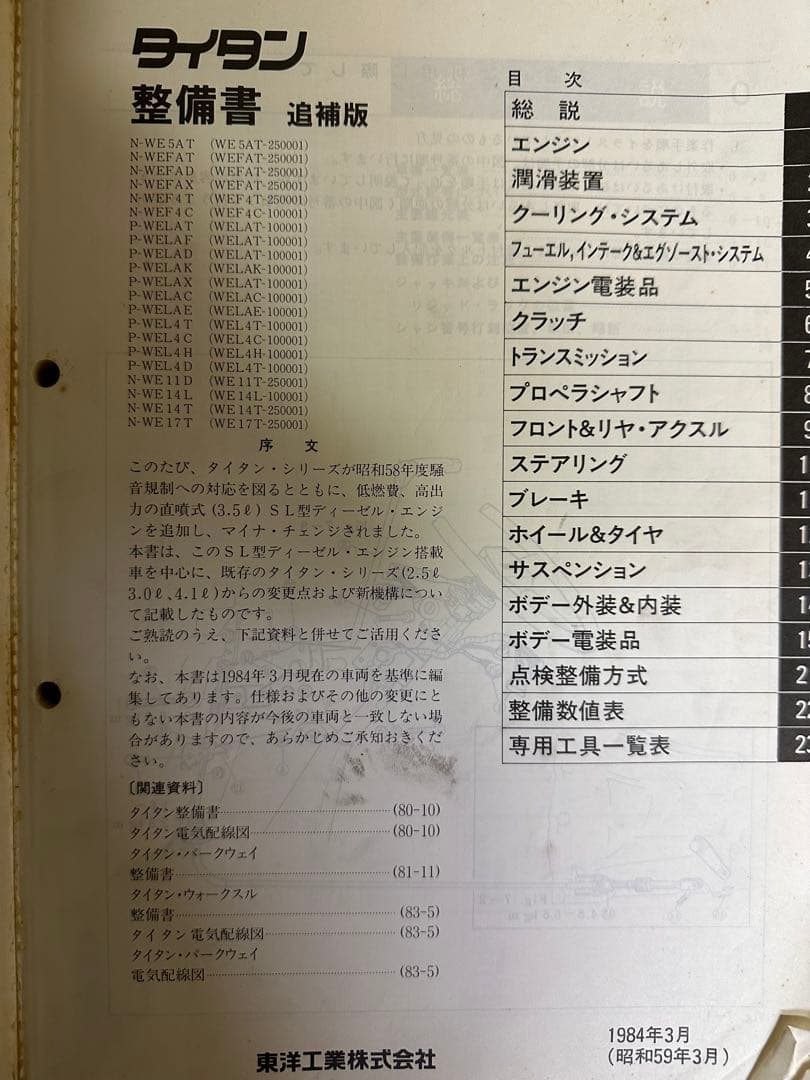 タイタン
整備書 追補版
N-WE5AT (WE5AT-250001)
N-WEFAT (WEFAT-250001)
N-WEFAD (WEFAT-250001)
N-WEFAX (WEFAT-250001)
N-WEF4T (WEF4T-250001)
N-WEF4C (WEF4C-100001)
P-WELAT (WELAT-100001)
P-WELAF (WELAT-100001)
P-WELAD (WELAT-100001)
P-WELAK (WELAK-100001)
P-WELAX (WELAT-100001)
P-WELAC (WELAC-100001)
P-WELAE (WELAE-100001)
P-WEL4T (WEL4T-100001)
P-WEL4C (WEL4C-100001)
P-WEL4H (WEL4H-100001)
P-WEL4D (WEL4T-100001)
N-WE11D (WE11T-250001)
N-WE14L (WE14L-100001)
N-WE14T (WE14T-250001)
N-WE17T (WE17T-250001)
序 文
このたび、タイタン・シリーズが昭和58年度騒
音規制への対応を図るとともに、低燃費、高出
力の直噴式(3.5ℓ)SL型ディーゼル・エンジ
ンを追加し、マイナ・チェンジされました。
本書は、このSL型ディーゼル・エンジン搭載
車を中心に、既存のタイタン・シリーズ(2.5ℓ
3.0ℓ、4.1ℓ)からの変更点および新機構につい
て記載したものです。
ご熟読のうえ、下記資料と併せてご活用くださ
い。
なお、本書は1984年3月現在の車両を基準に編
集してあります。仕様およびその他の変更にと
もない本書の内容が今後の車両と一致しない場
合がありますので、あらかじめご承知おきくだ
さい。
〔関連資料〕
タイタン整備書………………(80-10)
タイタン電気配線図………………(80-10)
タイタン・パークウェイ
整備書………………(81-11)
タイタン・ウォークスル
整備書………………(83-5)
タイタン電気配線図………………(83-5)
タイタン・パークウェイ
電気配線図………………(83-5)
東洋工業株式会社
目 次
総 説
エンジン
潤滑装置
クーリング・システム
フューエル,インテーク&エグゾースト・システム
エンジン電装品 5
クラッチ 6
トランスミッション 7
プロペラシャフト 8
フロント&リヤ・アクスル 9
ステアリング 1
ブレーキ 1
ホイール&タイヤ 1
サスペンション 1
ボデー外装&内装 1
ボデー電装品 15
点検整備方式 2
整備数値表 22
専用工具一覧表 23
1984年3月
(昭和59年3月)